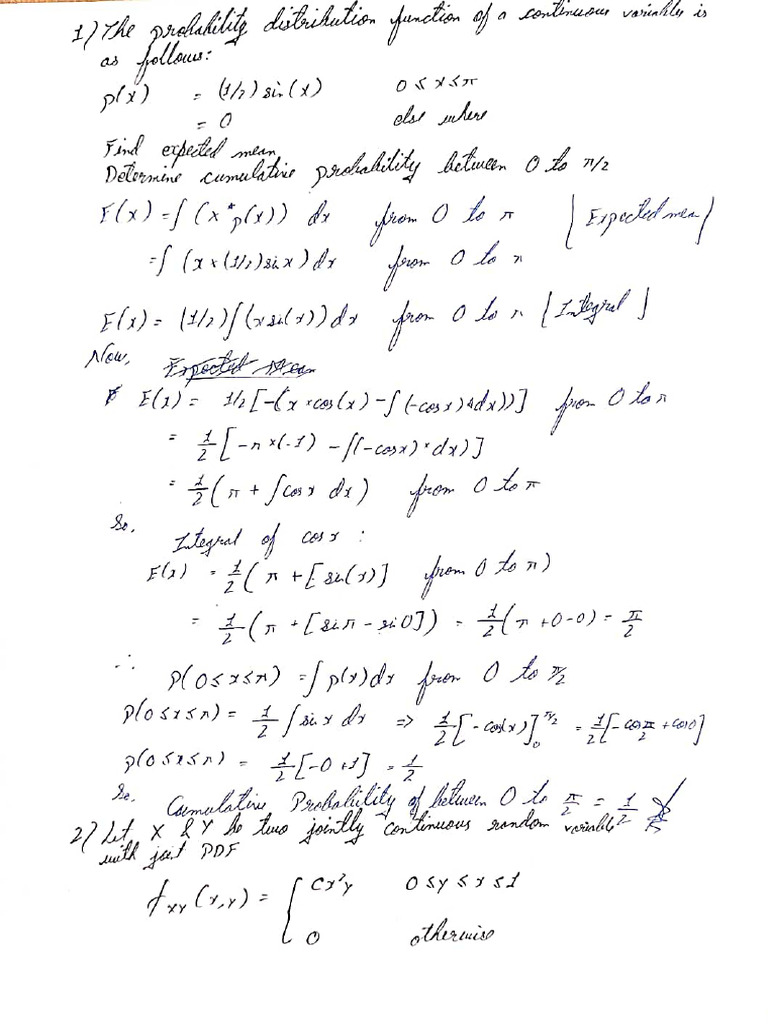 1) The probability distribution function of a continuous variables is
as follows:
p(x) = (1/2) sin(x) 0 ≤ x ≤ π
= 0 else where
Find expected mean
Determine cumulative probability between 0 to π/2
E(x) = ∫ (x * p(x)) dx from 0 to π [Expected mean]
= ∫ (x × (1/2) sin x) dx from 0 to π
E(x) = (1/2) ∫ (x sin(x)) dx from 0 to π [Integral]
Now,
E(x) = 1/2 [-(x × cos(x) - ∫ (-cos x) * dx))] from 0 to π
= 1/2 [-π × (-1) - ∫ (-cos x) * dx)]
= 1/2 (π + ∫ cos x dx) from 0 to π
So,
Integral of cos x :
E(x) = 1/2 (π + [sin(x)] from 0 to π)
= 1/2 (π + [sin π - sin 0]) = 1/2 (π + 0 - 0) = π/2
∴ P(0 ≤ x ≤ π) = ∫ p(x) dx from 0 to π/2
P(0 ≤ x ≤ π) = 1/2 ∫ sin x dx => 1/2 [-cos(x)]₀^π/2 = 1/2 [-cos π/2 + cos 0]
p(0 ≤ x ≤ π) = 1/2 [-0 + 1] = 1/2
So, Cumulative Probability of between 0 to π/2 = 1/2
2) Let X & Y be two jointly continuous random variable
with joit PDF
f_XY (x,y) = { Cx²y 0 ≤ y ≤ x ≤ 1
0 otherwise